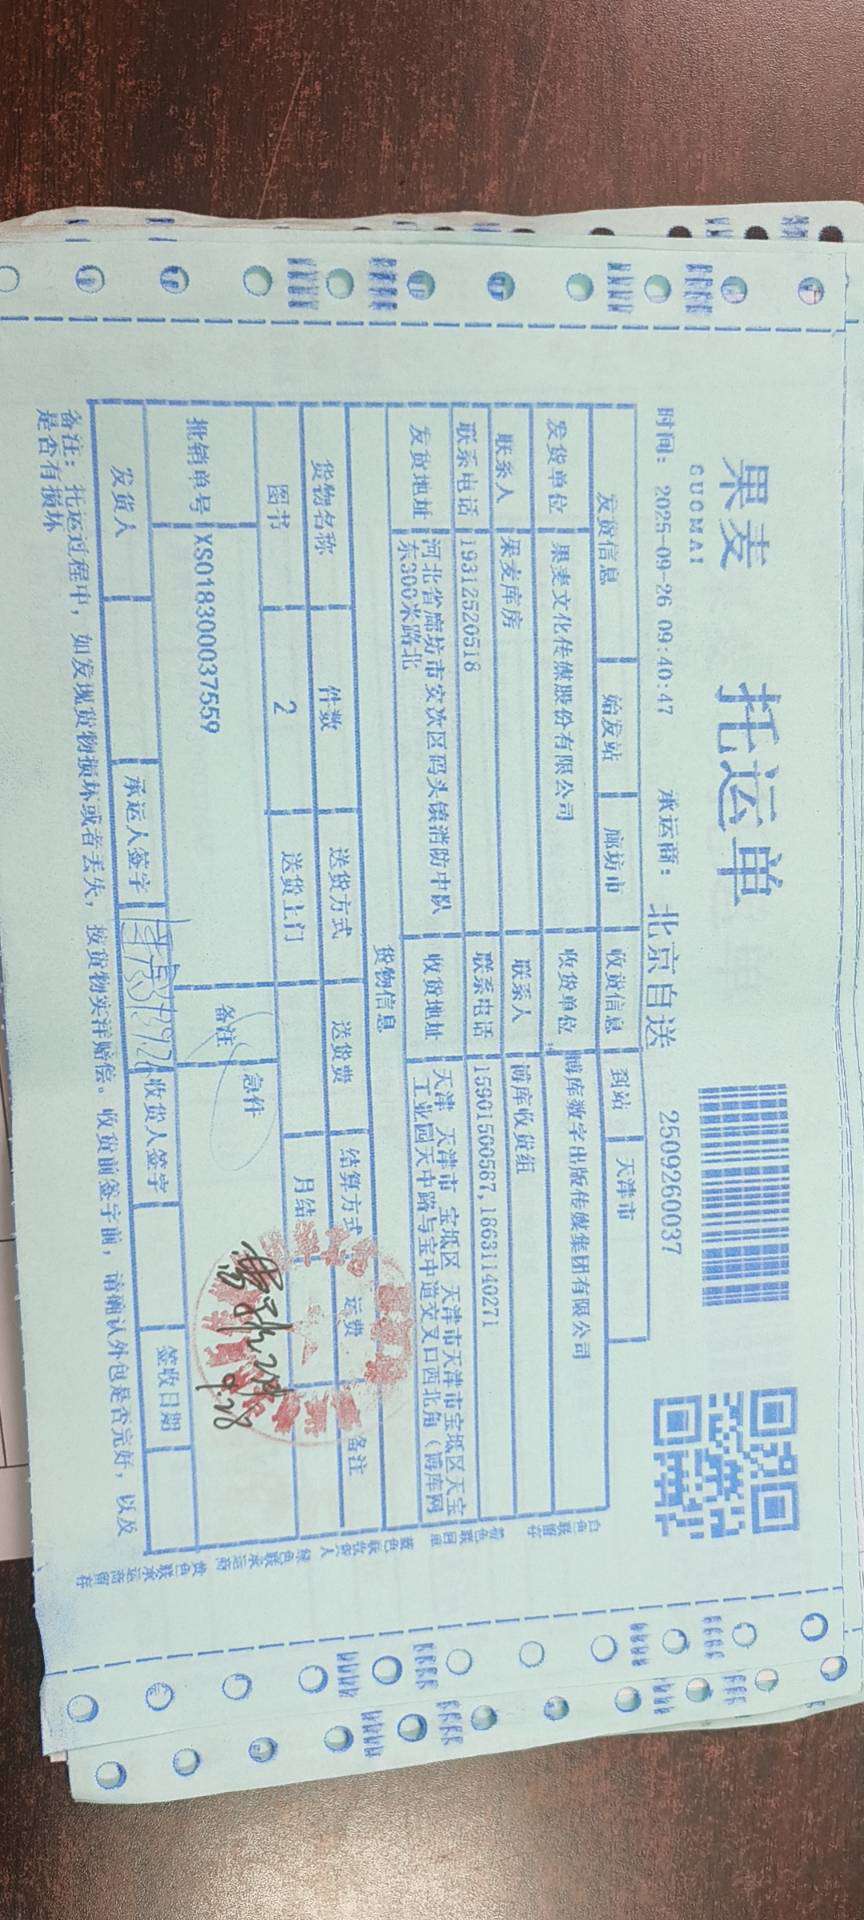 果麦
GUOMAI
托运单
时间: 2025-09-26 09:40:47 承运商: 北京自送 2509260037
发货信息 始发站 廊坊市 收货信息 到站 天津市
发货单位 果麦文化传媒股份有限公司 收货单位 博库数字出版传媒集团有限公司
联系人 果麦库房 联系人 博库收货组
联系电话 19312520518 联系电话 15901500587,18631140271
发货地址 河北省廊坊市安次区码头镇消防中队东300米路北 收货地址 天津 天津市 宝坻区 天津市天津市宝坻区天宝工业园天中路与宝中道交叉口西北角（博库网
货物信息
货物名称 件数 送货方式 送货费 结算方式 运费 备注
图书 2 送货上门 月结
批销单号 XS018300037559 备注 急件
9.28
发货人 承运人签字 收货人签字 签收日期
备注: 托运过程中, 如发现货物损坏或者丢失, 按货物实洋赔偿。收货前签字前, 请确认外包是否完好, 以及
是否有损坏
白色联留存 粉色联回单 蓝色联收货人 绿色联承运商 黄色联承运商留存